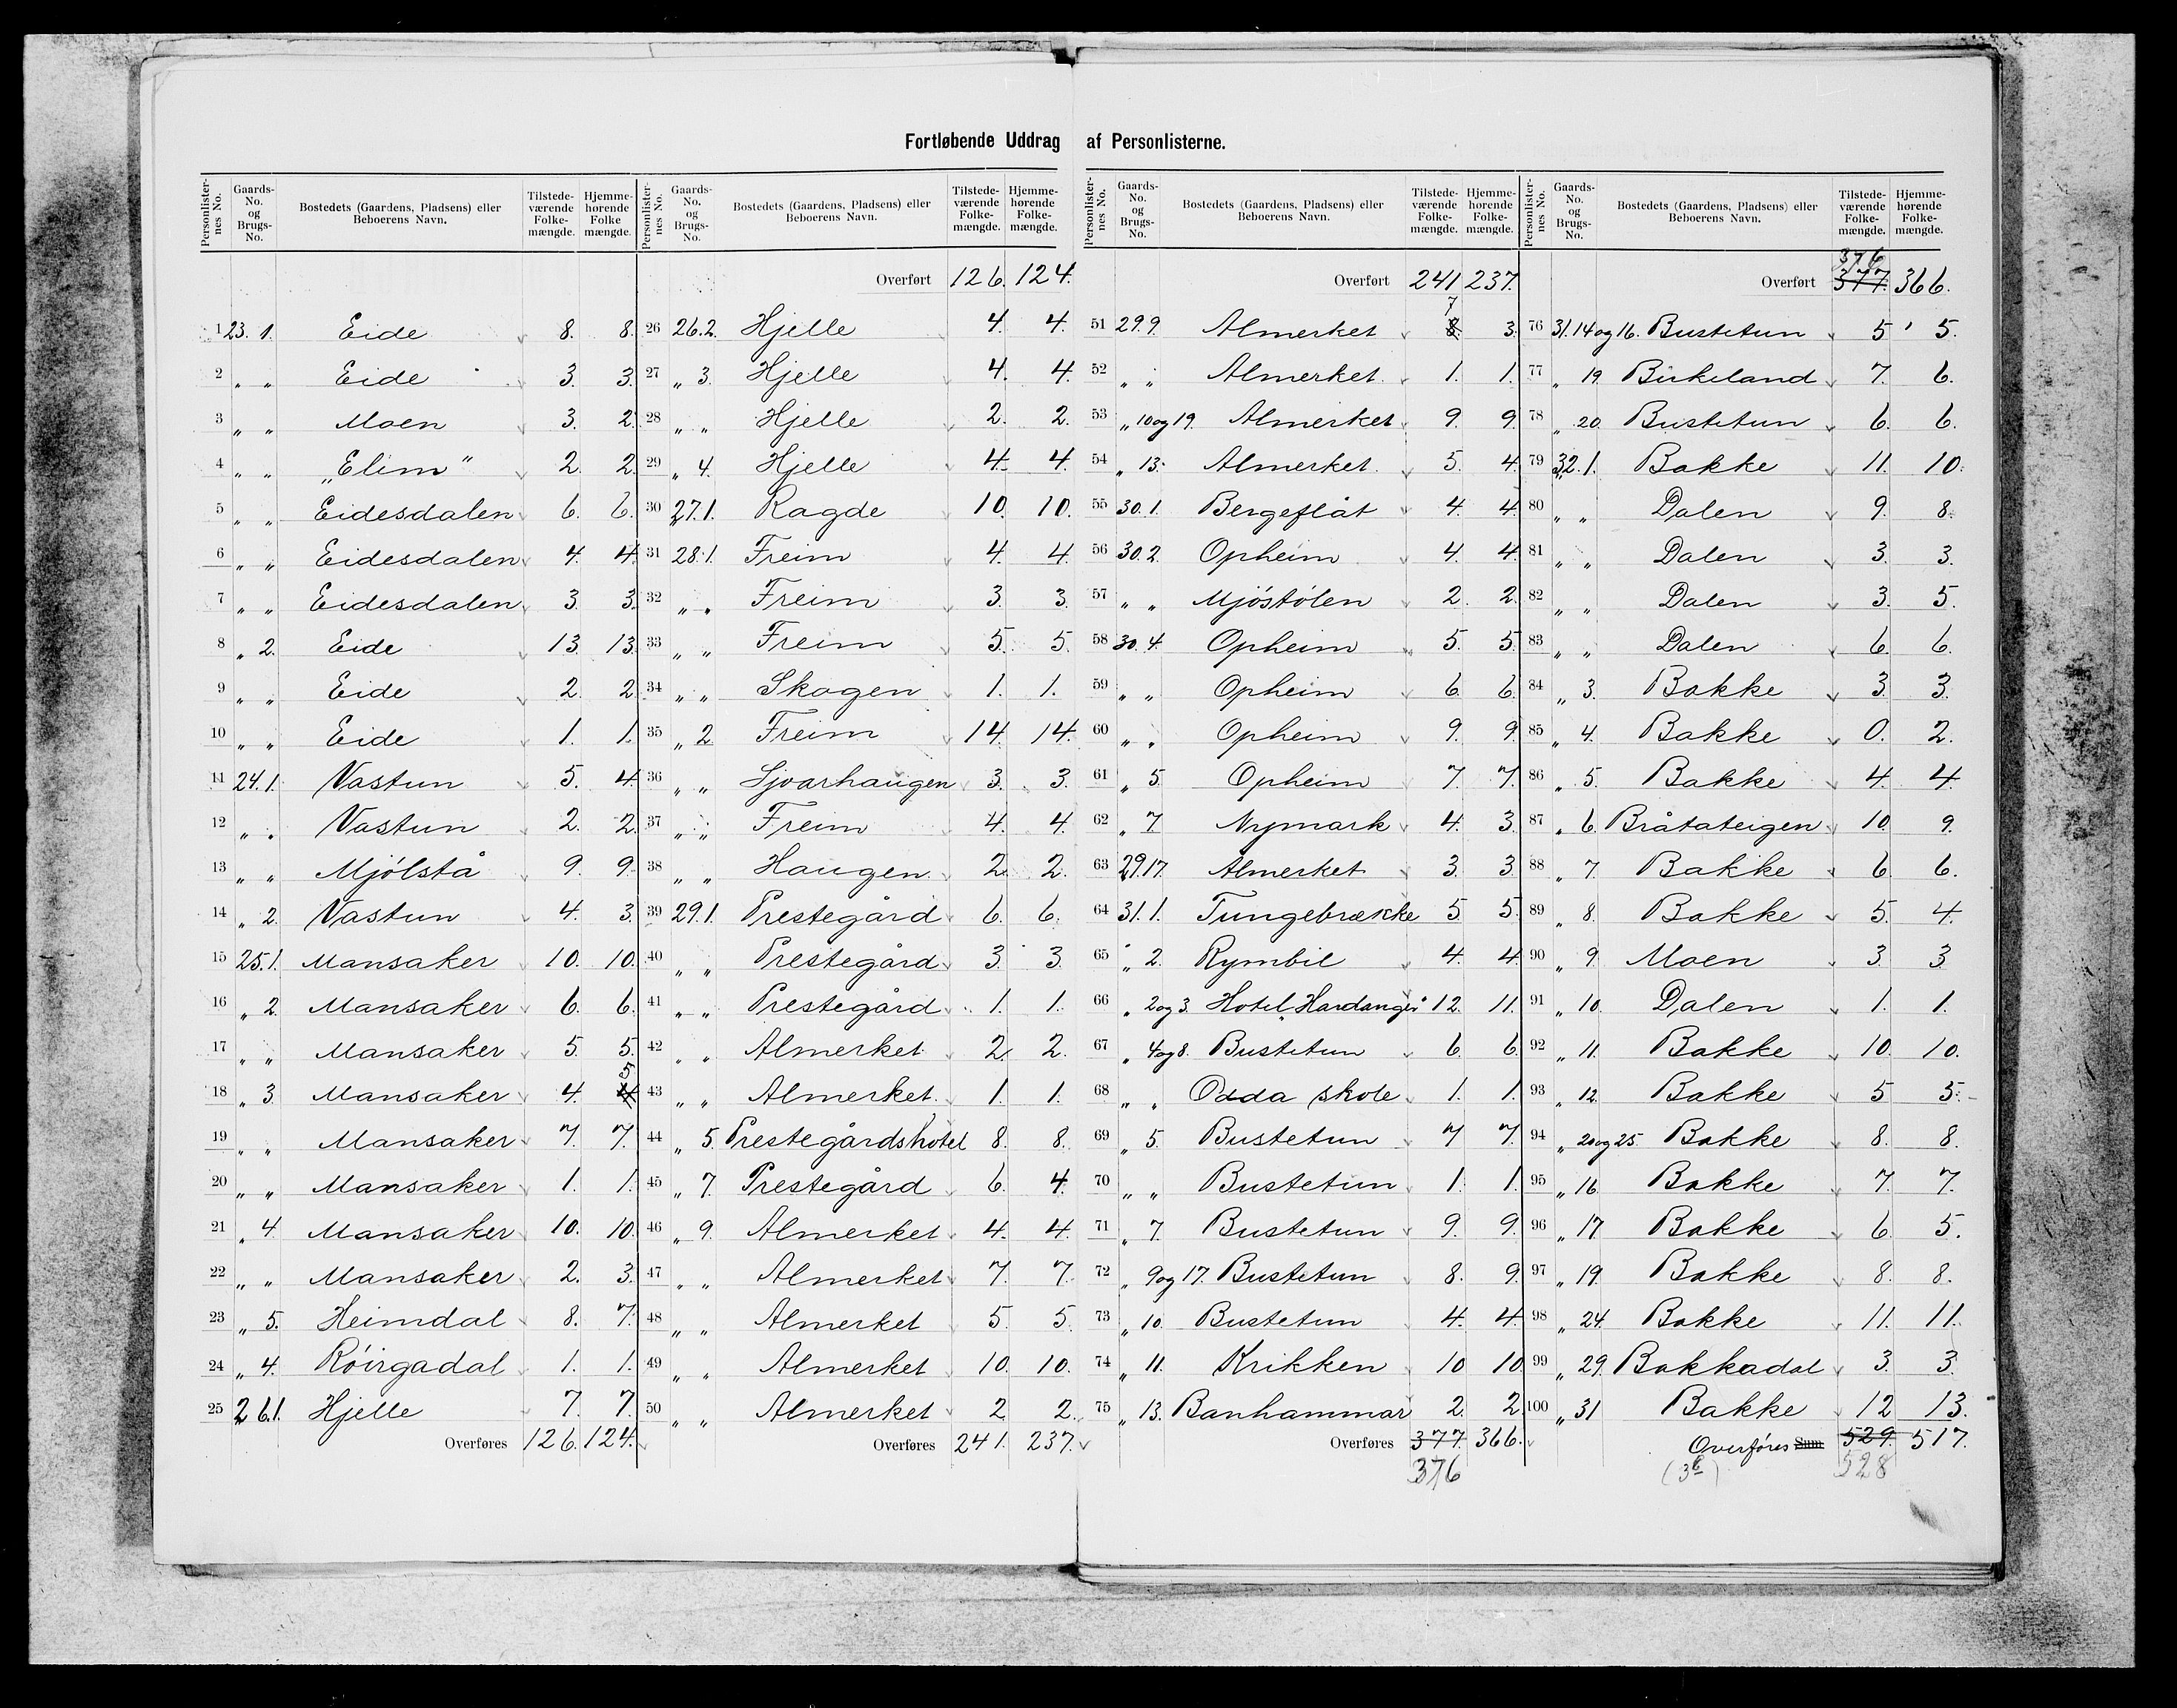 Fortløbende Uddrag af Personlisterne.
Personlister-nes No. Gaards-No. og Brugs-No. Bostedets (Gaardens, Pladsens) eller Beboerens Navn. Tilstede-værende Folke-mængde. Hjemme-hørende Folke mængde.
1 23. 1. Eide 8. 8.
2 " " Eide 3. 3.
3 " " Moen 3. 2.
4 " " „Elim" 2. 2.
5 " " Eidesdalen 6. 6.
6 " " Eidesdalen 4. 4.
7 " " Eidesdalen 3. 3.
8 " 2. Eide 13. 13.
9 " " Eide 2. 2.
10 " " Eide 1. 1.
11 24. 1. Vastun 5. 4.
12 " " Vastun 2. 2.
13 " " Mjólstå 9. 9.
14 " 2. Vastun 4. 3.
15 25. 1. Mansaker 10. 10.
16 " 2. Mansaker 6. 6.
17 " " Mansaker 5. 5.
18 " 3. Mansaker 4. 4 5
19 " " Mansaker 7. 7.
20 " " Mansaker 1. 1.
21 " 4 Mansaker 10. 10.
22 " " Mansaker 2. 3.
23 " 5. Heimdal 8. 7.
24 " 4. Róirgadal 1. 1.
25 26.1. Hjelle 7. 7.
Overføres 126. 124.
Personlister-nes No. Gaards-No. og Brugs-No. Bostedets (Gaardens, Pladsens) eller Beboerens Navn. Tilstede-værende Folke-mængde. Hjemme-hørende Folke-mængde.
Overført 126. 124.
26 26.2. Hjelle 4. 4.
27 " 3. Hjelle 4. 4.
28 " " Hjelle 2. 2.
29 " 4. Hjelle 4. 4.
30 27.1. Ragde 10. 10.
31 28.1. Freim 4. 4.
32 " " Freim 3. 3.
33 " " Freim 5. 5.
34 " " Skogen 1. 1.
35 " 2. Freim 14. 14.
36 " " Sjoarhaugen 3. 3.
37 " " Freim 4. 4.
38 " " Haugen 2. 2.
39 29.1. Prestegård 6. 6.
40 " " Prestegård 3. 3.
41 " " Prestegård 1. 1.
42 " " Almerket 2. 2.
43 " " Almerket 1. 1.
44 " 5. Prestegårdshotel 8. 8.
45 " 7. Prestegård 6. 4.
46 " 9. Almerket 4. 4.
47 " " Almerket 7. 7.
48 " " Almerket 5. 5.
49 " " Almerket 10. 10.
50 " " Almerket 2. 2.
Overføres 241. 237.
Personlister-nes No. Gaards-No. og Brugs-No. Bostedets (Gaardens, Pladsens) eller Beboerens Navn. Tilstede-værende Folke-mængde. Hjemme-hørende Folke-mængde.
Overført 241 237.
51 29.9. Almerket 8. 7 3.
52 " " Almerket 1. 1.
53 " 10 og 19. Almerket 9. 9.
54 " 13. Almerket 5. 4.
55 30.1. Bergeflåt 4. 4.
56 30.2. Opheim 4. 4.
57 " " Mjóstólen 2. 2.
58 30.4. Opheim 5. 5.
59 " " Opheim 6. 6.
60 " " Opheim 9. 9.
61 " 5. Opheim 7. 7.
62 " 7. Nymark 4. 3.
63 29.17. Almerket 3. 3.
64 31.1. Tungebrække 5. 5.
65 " 2. Rymbil 4. 4.
66 " 2 og 3. Hotel „Hardanger" 12. 11.
67 " 4 og 8. Bustetun 6. 6.
68 " " Odda skole 1. 1.
69 " 5. Bustetun 7. 7.
70 " " Bustetun 1. 1.
71 " 7. Bustetun 9. 9.
72 " 9 og 17. Bustetun 8. 9.
73 " 10. Bustetun 4. 4.
74 " 11. Krikken 10 10.
75 " 13. Banhammar 2. 2.
Overføres 377. 366.
376
Personlister-nes No. Gaards-No. og Brugs-No. Bostedets (Gaardens, Pladsens) eller Beboerens Navn. Tilstede-værende Folke-mængde. Hjemme-hørende Folke-mængde.
376
Overført 377. 366.
76 31.14 og 16. Bustetun 5 5.
77 " 19. Birkeland 7. 6.
78 " 20. Bustetun 6. 6.
79 32.1. Bakke 11. 10.
80 " " Dalen 9. 8.
81 " " Dalen 3. 3.
82 " " Dalen 3. 5.
83 " " Dalen 6. 6.
84 " 3. Bakke 3. 3.
85 " 4. Bakke 0. 2.
86 " 5. Bakke 4. 4.
87 " 6. Bråtateigen 10. 9.
88 " 7 Bakke 6. 6.
89 " 8. Bakke 5. 4.
90 " 9. Moen 3. 3
91 " 10. Dalen 1. 1.
92 " 11. Bakke 10. 10.
93 " 12. Bakke 5 5.
94 " 20 og 25. Bakke 8. 8.
95 " 16. Bakke 7. 7.
96 " 17 Bakke 6. 5.
97 " 19. Bakke 8. 8.
98 " 24. Bakke 11. 11.
99 " 29. Bakkadal 3. 3.
100 " 31 Bakke 12 13.
Overføres Sum 529. 517.
528